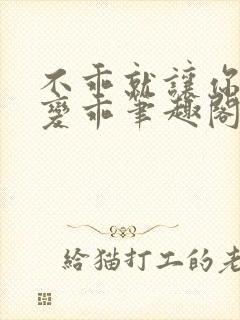 不乖就讓你
變乖筆趣閣
給猫打工的老